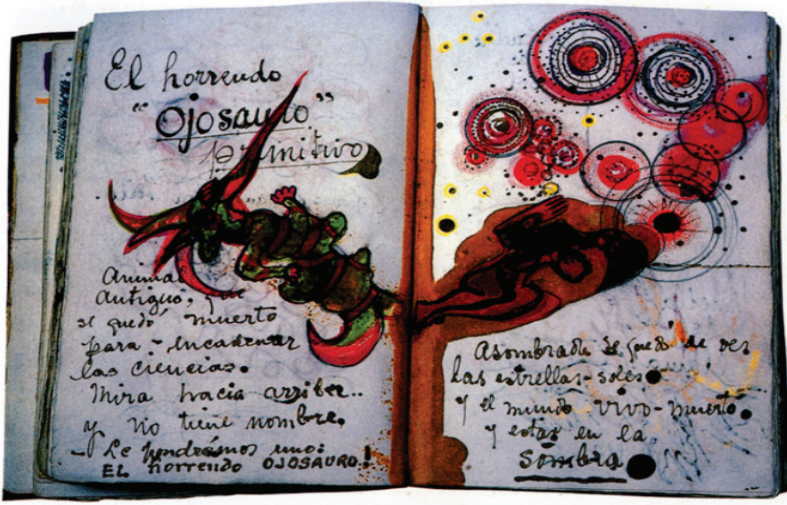 El horrendo
"Ojosauro"
primitivo
Animal
antiguo, que
se quedó muerto
para encadenar
las ciencias.
Mira hacia arriba..
y no tiene nombre.
- Le pondrémos uno:
EL horrendo OJOSAURO!
Asombrado se quedó de ver
las estrellas-soles
y el mundo vivo-muerto
y estar en la
sombra